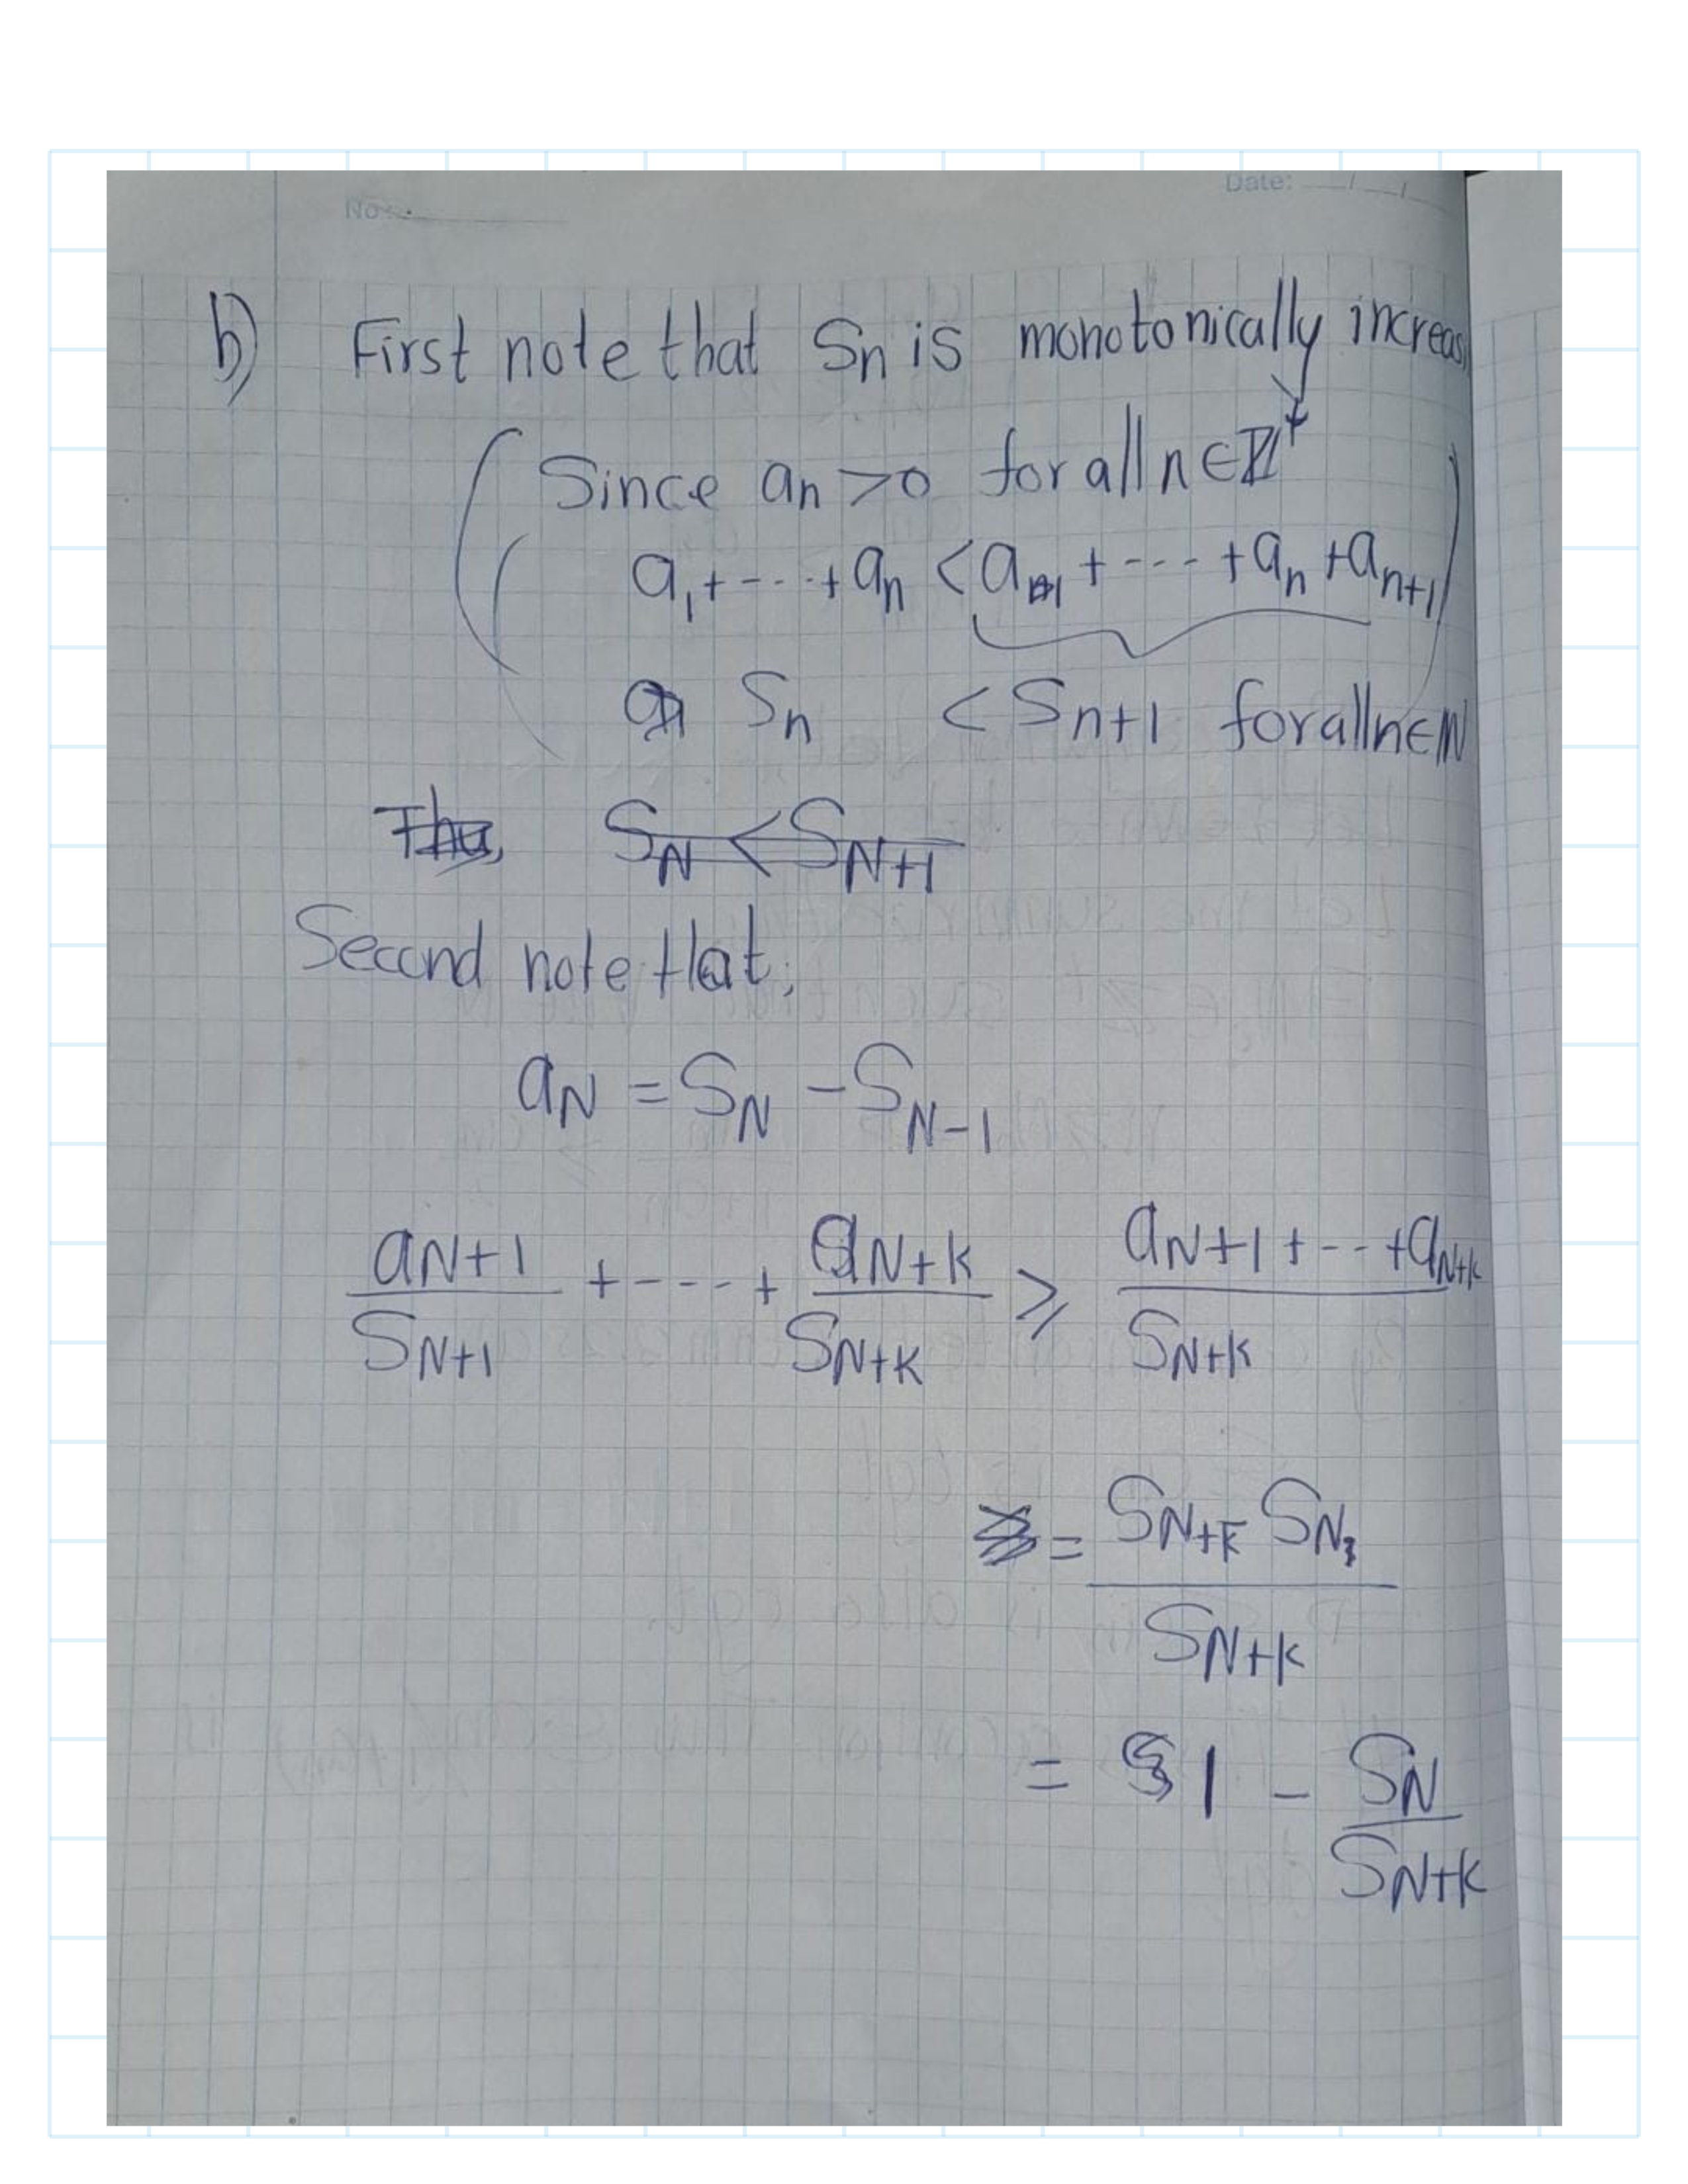 No.
Date: / /
b) First note that Sn is monotonically increas
Since an > 0 for all n ∈ ℤ⁺
a1 + --- + an < a1 + --- + an + an+1
Sn < Sn+1 for all n ∈ ℕ
Thus, SN < SN+1
Second note that;
aN = SN - SN-1
aN+1/SN+1 + --- + aN+k/SN+k ⩾ (aN+1 + -- + aN+k)/SN+k
= (SN+k SN)/SN+k
= 1 - SN/SN+k